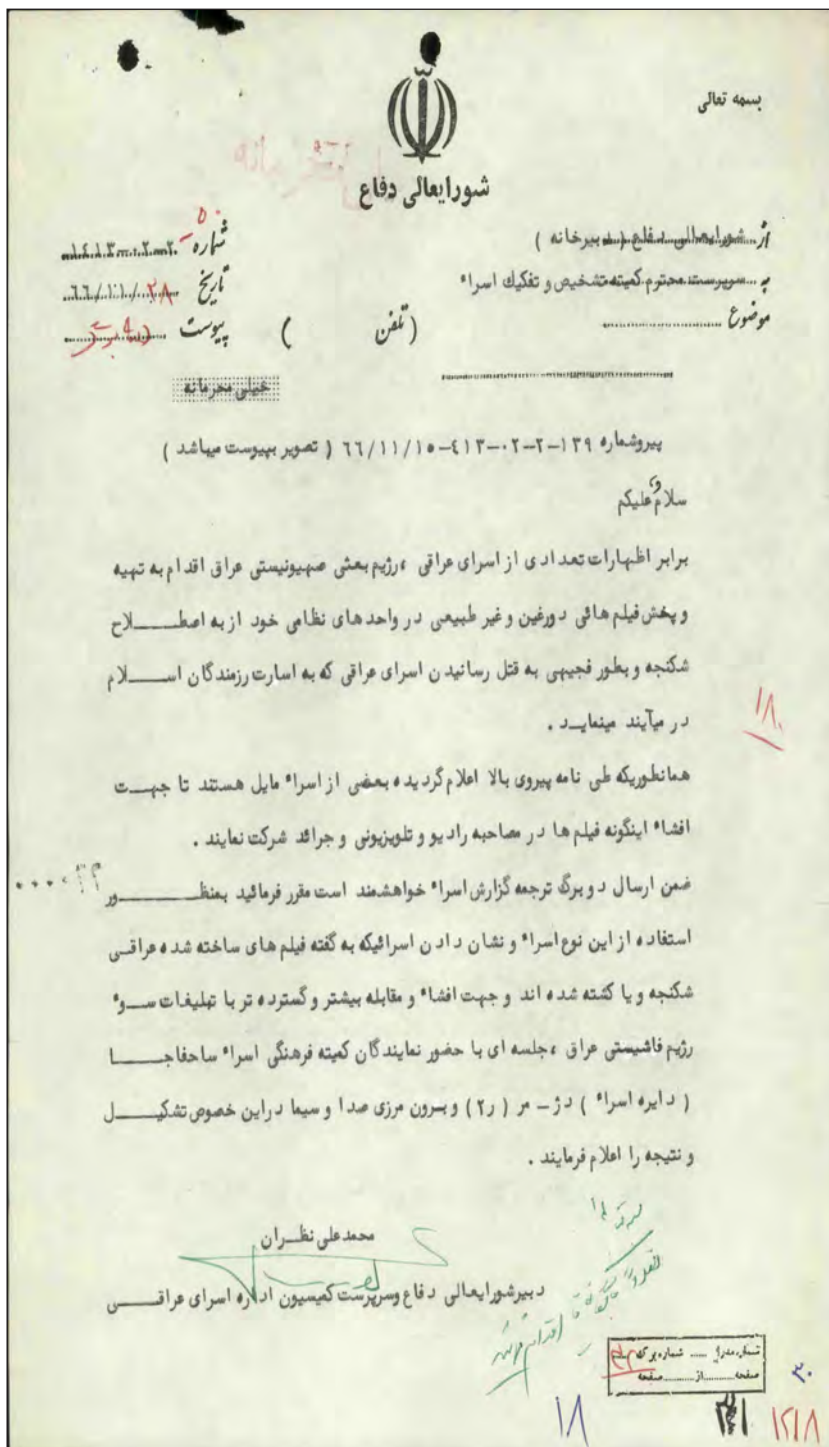 بسمه تعالی
شورایعالی دفاع
از شورایعالی دفاع ( دبیرخانه )
به سرپرست محترم کمیته تشخیص و تفکیک اسراء
موضوع
شماره
تاریخ ۶۶/۱۱/۲۸
پیوست
( تلفن )
خیلی محرمانه
پیروشماره ۱۳۹-۲-۰۲-۴۱۳-۶۶/۱۱/۱۵ ( تصویر بپیوست میباشد )
سلام علیکم
برابر اظهارات تعدادی از اسرای عراقی ،رژیم بعثی صهیونیستی عراق اقدام به تهیه
و پخش فیلم هائی دورغین و غیر طبیعی در واحدهای نظامی خود از به اصطــلاح
شکنجه و بطور فجیهی به قتل رسانیدن اسرای عراقی که به اسارت رزمندگان اســلام
در میآیند مینمایــد .
همانطوریکه طی نامه پیروی بالا اعلام گردیده بعضی از اسراء مایل هستند تا جهــت
افشاء اینگونه فیلم ها در مصاحبه رادیو و تلویزیونی و جرائد شرکت نمایند .
ضمن ارسال دو برگ ترجمه گزارش اسراء خواهشمند است مقرر فرمائید بمنظــور
استفاده از این نوع اسراء و نشان دادن اسرائیکه به گفته فیلم های ساخته شده عراقــی
شکنجه و یا کشته شده اند و جهت افشاء و مقابله بیشتر و گسترده تر با تبلیغات ســوء
رژیم فاشیستی عراق ،جلسه ای با حضور نمایندگان کمیته فرهنگی اسراء ساحفاجــا
( دایره اسراء ) دژ - مر ( ر۲ ) و برون مرزی صدا و سیما دراین خصوص تشکیــل
و نتیجه را اعلام فرمایند .
محمدعلی نظــران
دبیرشورایعالی دفاع وسرپرست کمیسیون اداره اسرای عراقــی
شماره برگ
صفحه از صفحه
۱۸
۱۸
۳۰
۱۲۱۸